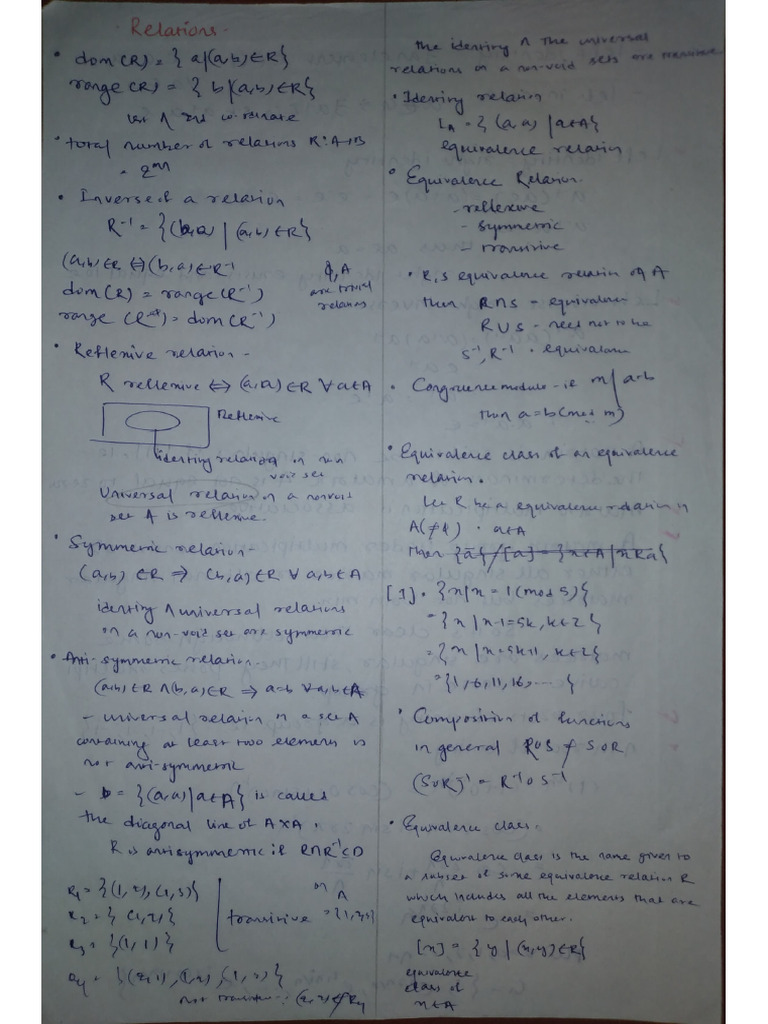 Relations -
• dom(R) = { a|(a,b) ∈ R}
range (R) = { b|(a,b) ∈ R}
1st ∧ 2nd co-ordinate
• total number of relations R: A→B
= 2^mn
• Inverse of a relation
R⁻¹ = {(b,a) | (a,b) ∈ R}
(a,b) ∈ R ⇔ (b,a) ∈ R⁻¹
dom(R) = range(R⁻¹)
range (R) = dom(R⁻¹)
ϕ, A
are trivial
relations
• Reflexive relation -
R reflexive ⇔ (a,a) ∈ R ∀ a∈A
Reflexive
identity relation on non
void set
Universal relation on a nonvoid
set A is reflexive.
• Symmetric relation -
(a,b) ∈ R ⇒ (b,a) ∈ R ∀ a,b ∈ A
identity ∧ universal relations
on a non-void set are symmetric
• Anti-symmetric relation -
(a,b) ∈ R ∧ (b,a) ∈ R ⇒ a=b ∀ a,b ∈ A
- universal relation on a set A
containing at least two elements is
not anti-symmetric
- D = {(a,a)|a∈A} is called
the diagonal line of A×A.
R is antisymmetric if R∩R⁻¹⊂D
R₁ = {(1,2),(1,3)}
R₂ = {(1,2)}
R₃ = {(1,1)}
transitive
on A
= {1,2,3}
R₄ = {(2,1),(1,2),(1,1)}
not transitive ∵ (2,2) ∉ R₄
the identity ∧ the universal
relations on a non-void sets are transitive
• Identity relation
I_A = { (a,a) | a∈A}
equivalence relation
• Equivalence Relation.
- reflexive
- symmetric
- transitive
• R, S equivalence relation of A
then R∩S - equivalence
R∪S - need not to be
S⁻¹, R⁻¹ - equivalence
• Congruence modulo - ie m | a-b
then a=b (mod m)
• Equivalence class of an equivalence
relation.
Let R be a equivalence relation in
A(≠ϕ) . a∈A
then {a}/[a] = {x∈A | xRa}
[1] = {x|x = 1(mod 5)}
= {x | x-1=5k, k∈Z}
= {x | x=5k+1, k∈Z}
= {1,6,11,16,....}
• Composition of functions
in general RoS ≠ SoR
(SoR)⁻¹ = R⁻¹oS⁻¹
• Equivalence class.
Equivalence class is the name given to
a subset of some equivalence relation R
which includes all the elements that are
equivalent to each other.
[x] = { y | (x,y) ∈ R}
equivalence
class of
x∈A